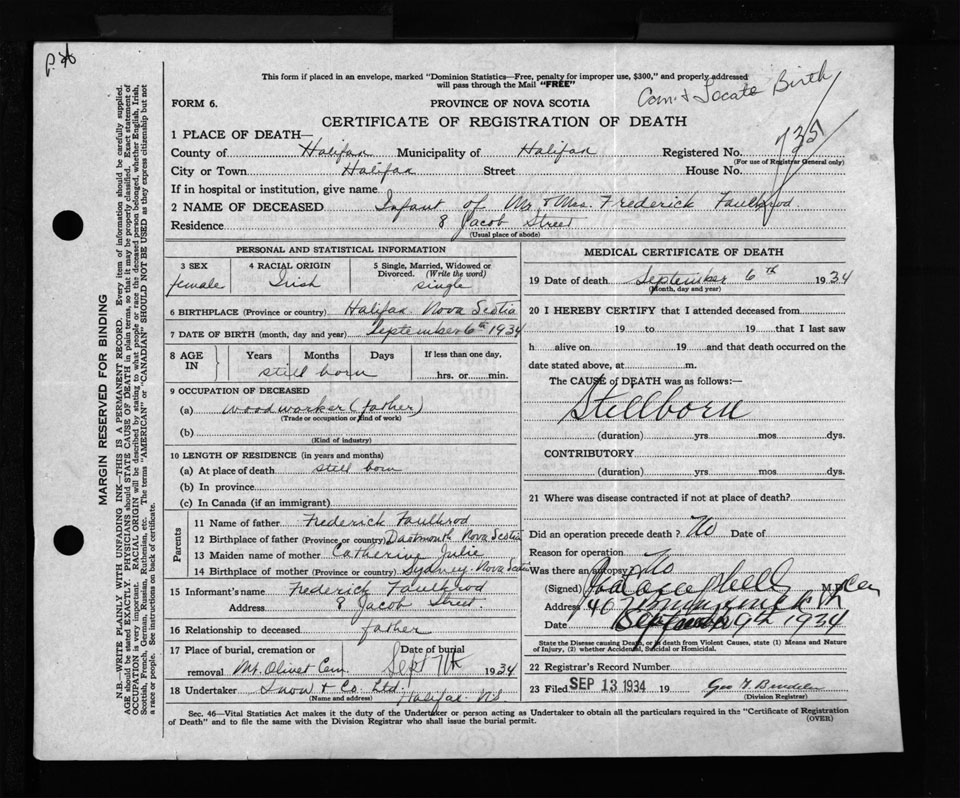 This form if placed in an envelope, marked "Dominion Statistics—Free, penalty for improper use, $300," and properly addressed
will pass through the Mail "FREE"
Com. & Locate Birth
FORM 6.
PROVINCE OF NOVA SCOTIA
CERTIFICATE OF REGISTRATION OF DEATH
1 PLACE OF DEATH—
County of Halifax Municipality of Halifax Registered No.
(For use of Registrar General only)
City or Town Halifax Street House No.
If in hospital or institution, give name
2 NAME OF DECEASED Infant of Mr. & Mrs. Frederick Faulkrod.
Residence 8 Jacob Street
(Usual place of abode)
PERSONAL AND STATISTICAL INFORMATION
3 SEX 4 RACIAL ORIGIN 5 Single, Married, Widowed or
Divorced. (Write the word)
female Irish single
6 BIRTHPLACE (Province or country) Halifax Nova Scotia
7 DATE OF BIRTH (month, day and year) September 6th 1934
8 AGE IN Years Months Days If less than one day,
still born hrs. or min.
9 OCCUPATION OF DECEASED
(a) woodworker (father)
(Trade or occupation or kind of work)
(b)
(Kind of industry)
10 LENGTH OF RESIDENCE (in years and months)
(a) At place of death still born
(b) In province
(c) In Canada (if an immigrant)
Parents
11 Name of father Frederick Faulkrod
12 Birthplace of father (Province or country) Dartmouth Nova Scotia
13 Maiden name of mother Catherine Julie
14 Birthplace of mother (Province or country) Sydney Nova Scotia
15 Informant's name Frederick Faulkrod
Address 8 Jacob Street.
16 Relationship to deceased father
17 Place of burial, cremation or Date of burial
removal Mt. Olivet Cem. Sept 7th 1934
18 Undertaker Snow & Co. Ltd.
(Name and address) Halifax N.S
MEDICAL CERTIFICATE OF DEATH
19 Date of death September 6th 1934
(Month, day and year)
20 I HEREBY CERTIFY that I attended deceased from
19 to 19 that I last saw
h alive on 19 and that death occurred on the
date stated above, at m.
The CAUSE of DEATH was as follows:—
Stillborn
(duration) yrs mos dys.
CONTRIBUTORY
(duration) yrs mos dys.
21 Where was disease contracted if not at place of death?
Did an operation precede death? No Date of
Reason for operation
Was there an autopsy? No
(Signed) M.D.
Address 40
Date 9th 1934
State the Disease causing Death, or in death from Violent Causes, state (1) Means and Nature
of Injury, (2) whether Accidental, Suicidal or Homicidal.
22 Registrar's Record Number
23 Filed SEP 13 1934 19
(Division Registrar)
Sec. 46—Vital Statistics Act makes it the duty of the Undertaker or person acting as Undertaker to obtain all the particulars required in the "Certificate of Registration
of Death" and to file the same with the Division Registrar who shall issue the burial permit.
(OVER)
MARGIN RESERVED FOR BINDING
N.B.—WRITE PLAINLY WITH UNFADING INK—THIS IS A PERMANENT RECORD. Every item of information should be carefully supplied.
AGE should be stated EXACTLY. PHYSICIANS should STATE CAUSE OF DEATH in plain terms, so that it may be properly classified. Exact statement of
OCCUPATION is very important. RACIAL ORIGIN will be described by stating to what people or race the deceased person belonged, whether English, Irish,
Scottish, French, German, Russian, Ruthenian, etc. The terms "AMERICAN" or "CANADIAN" SHOULD NOT BE USED as they express citizenship but not
a race or people. See instructions on back of certificate.